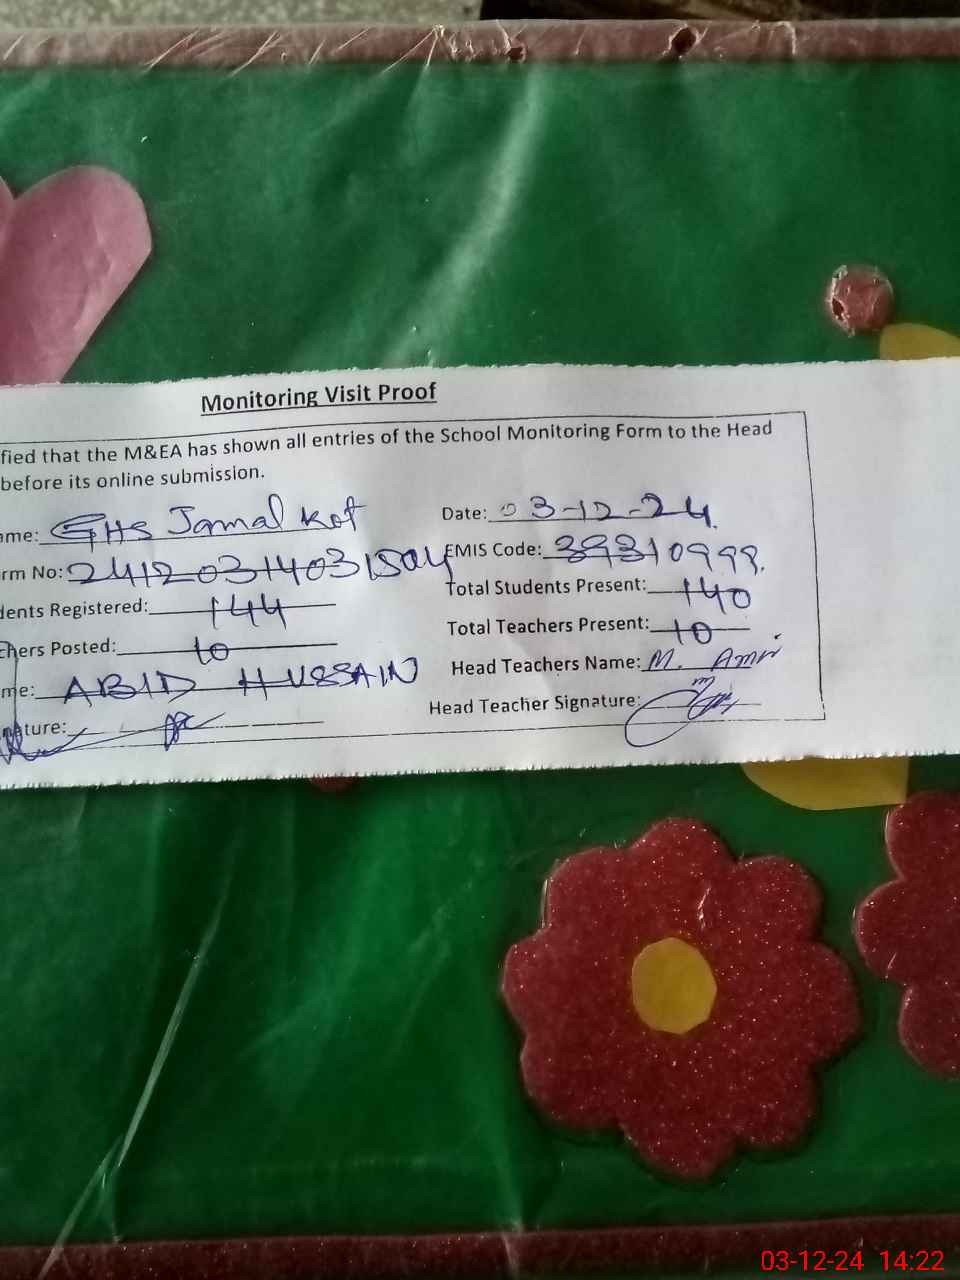 Monitoring Visit Proof
fied that the M&EA has shown all entries of the School Monitoring Form to the Head
before its online submission.
ame: GHS Jamal Kot Date: 03-12-24
rm No: EMIS Code:
dents Registered: 144 Total Students Present: 140
chers Posted: 10 Total Teachers Present: 10
me: ABID HUSSAIN Head Teachers Name: M.
nature: Head Teacher Signature:
03-12-24 14:22